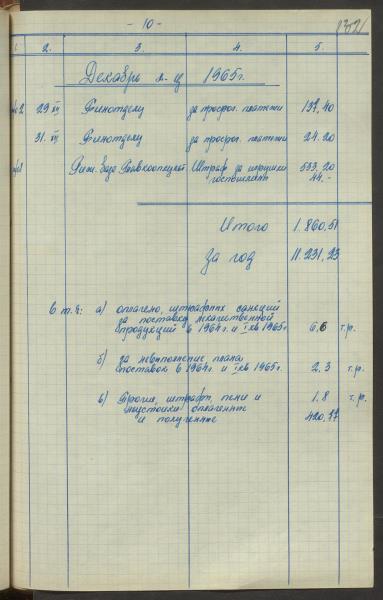 - 10 -
1. 2. 3. 4. 5.
Декабрь м-ц 1965г.
29 XII Финотделу за просроч. платежи 137,40
31. XII Финотделу за просроч. платежи 24.20
Риж. база Штраф за 533.20
госпошлина 44.-
Итого 1.860,51
За год 11.231,23
в т.ч: а) оплачено, штрафных санкций
за поставку некачественной
продукции в 1964г. и I кв 1965г 6.6 т.р.
б) за невыполнение плана
поставок в 1964г. и I кв 1965г. 2.3 т.р.
в) Прочие, штрафы, пени и 1.8 т.р.
неустойки оплаченные 420,77
и полученные